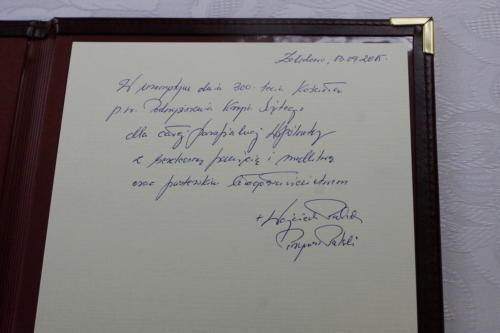 Żołędowo, 13.09.2015.
W uroczystym dniu 300-lecia Kościoła
p.w. Podwyższenia Krzyża Świętego
dla całej parafialnej Wspólnoty
z serdeczną pamięcią i modlitwą
oraz pasterskim błogosławieństwem
+ Wojciech Polak
Prymas Polski